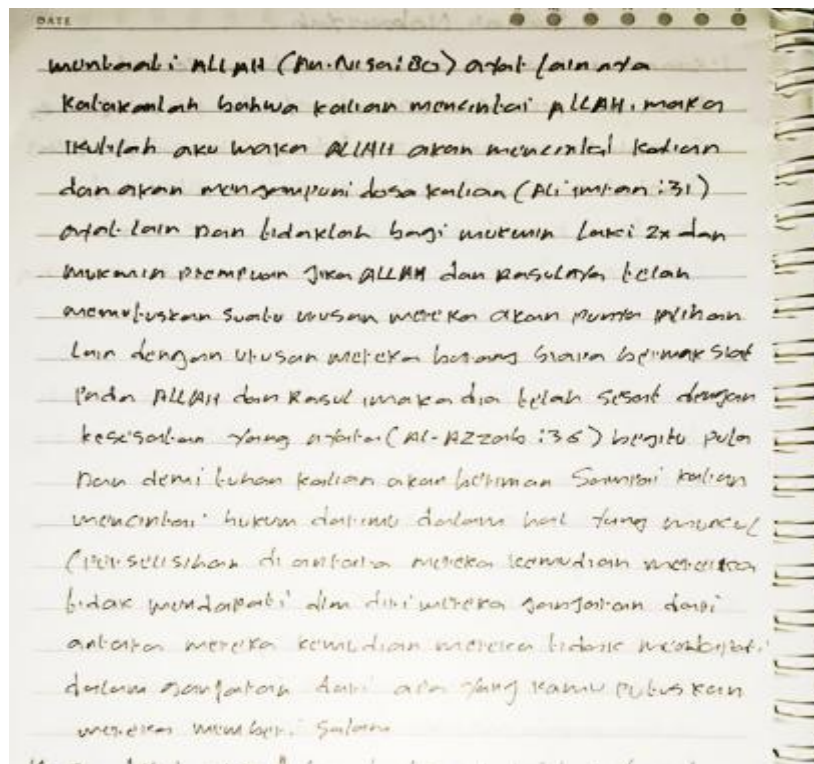 DATE
mentaati ALLAH (An.Nisa:80) ayat lain nya
Katakanlah bahwa kalian mencintai ALLAH, maka
ikutilah aku maka ALLAH akan mencintai kalian
dan akan mengampuni dosa kalian (Ali imran :31)
ayat lain Dan tidaklah bagi mukmin laki 2x dan
mukmin prempuan jika ALLAH dan Rasulnya telah
memutuskan suatu urusan mereka akan punya pilihan
lain dengan urusan mereka barang siapa bermaksiat
Pada ALLAH dan Rasul maka dia telah sesat dengan
kesesatan yang nyata (Al-Azzab :36) begitu pula
Dan demi tuhan kalian akan beriman Sampai kalian
mencintai hukum darimu dalam hal yang muncul
(perselisihan di antara mereka kemudian mereka
tidak mendapati dlm diri mereka ganjaran dari
antara mereka kemudian mereka tidak mendapati
dalam ganjaran dari apa yang kamu putuskan
mereka memberi Salam